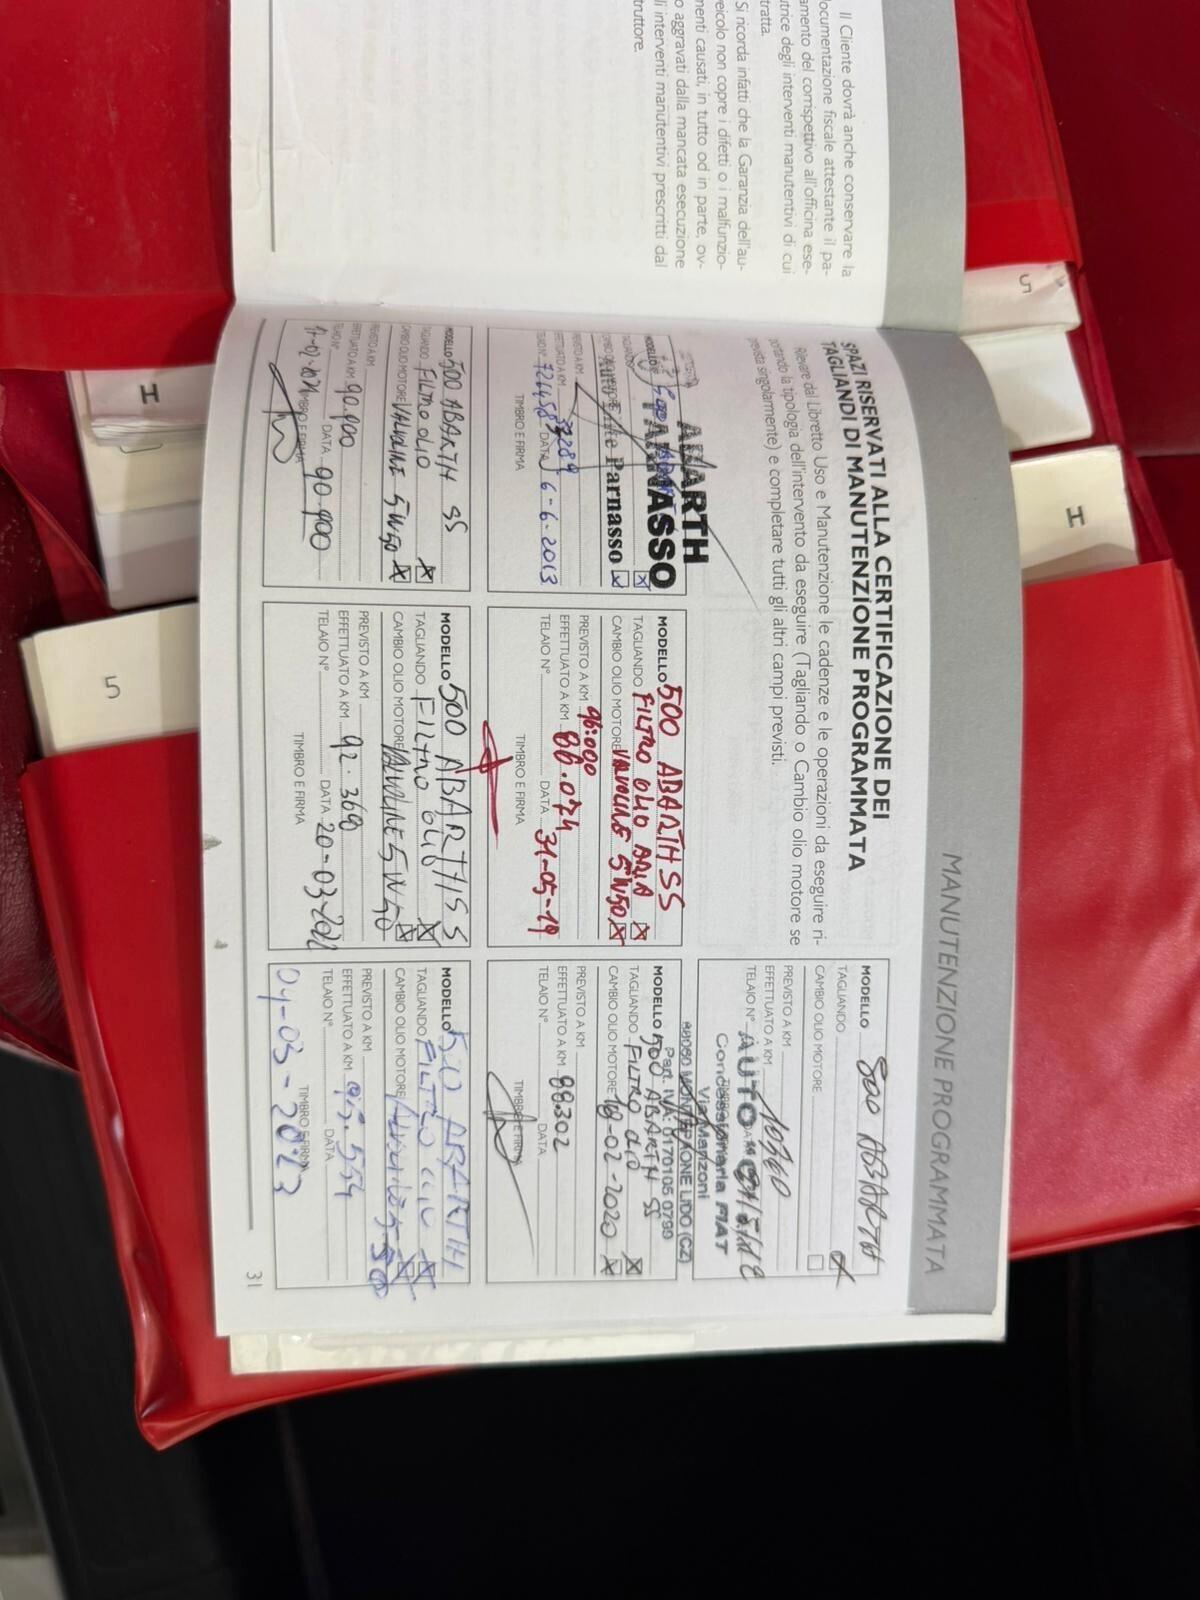 Il Cliente dovrà anche conservare la
documentazione fiscale attestante il pa-
amento del corrispettivo all'officina ese-
utrice degli interventi manutentivi di cui
tratta.
Si ricorda infatti che la Garanzia dell'au-
veicolo non copre i difetti o i malfunzio-
menti causati, in tutto od in parte, ov-
o aggravati dalla mancata esecuzione
li interventi manutentivi prescritti dal
truttore.
MANUTENZIONE PROGRAMMATA
SPAZI RISERVATI ALLA CERTIFICAZIONE DEI
TAGLIANDI DI MANUTENZIONE PROGRAMMATA
Rilevare dal Libretto Uso e Manutenzione le cadenze e le operazioni da eseguire ri-
portando la tipologia dell'intervento da eseguire (Tagliando o Cambio olio motore se
prevista singolarmente) e completare tutti gli altri campi previsti.
MODELLO 500 ABARTH
TAGLIANDO X
CAMBIO OLIO MOTORE
PREVISTO A KM
EFFETTUATO A KM
TELAIO N°
AUTO
Concessionaria FIAT
Via Manzoni
88060 MONTEPAONE LIDO (CZ)
Part. IVA: 0170105 0799
MODELLO
ABARTH
PARNASSO
Auto Parnasso
EFFETTUATO A KM 37289
TELAIO N° 726458 DATA 6-6-2013
TIMBRO E FIRMA
MODELLO 500 ABARTH SS
TAGLIANDO FILTRO OLIO ARIA X
CAMBIO OLIO MOTORE VALVOLINE 5W50 X
PREVISTO A KM 96.000
EFFETTUATO A KM 86.074
TELAIO N° DATA 31-05-19
TIMBRO E FIRMA
MODELLO 500 ABARTH SS
TAGLIANDO FILTRO OLIO X
CAMBIO OLIO MOTORE 18-02-2020 X
PREVISTO A KM
EFFETTUATO A KM 88302
TELAIO N° DATA
TIMBRO E FIRMA
MODELLO 500 ABARTH SS
TAGLIANDO FILTRO OLIO X
CAMBIO OLIO MOTORE VALVOLINE 5W50 X
PREVISTO A KM
EFFETTUATO A KM 90.900
TELAIO N° DATA 90.900
TIMBRO E FIRMA
MODELLO 500 ABARTH SS
TAGLIANDO FILTRO OLIO X
CAMBIO OLIO MOTORE VALVOLINE 5W50 X
PREVISTO A KM
EFFETTUATO A KM 92.369
TELAIO N° DATA 20-03-2022
TIMBRO E FIRMA
MODELLO 500 ABARTH
TAGLIANDO FILTRO OLIO X
CAMBIO OLIO MOTORE X
PREVISTO A KM
EFFETTUATO A KM
TELAIO N° DATA
04-03-2023
TIMBRO E FIRMA
31
5
H
H
5